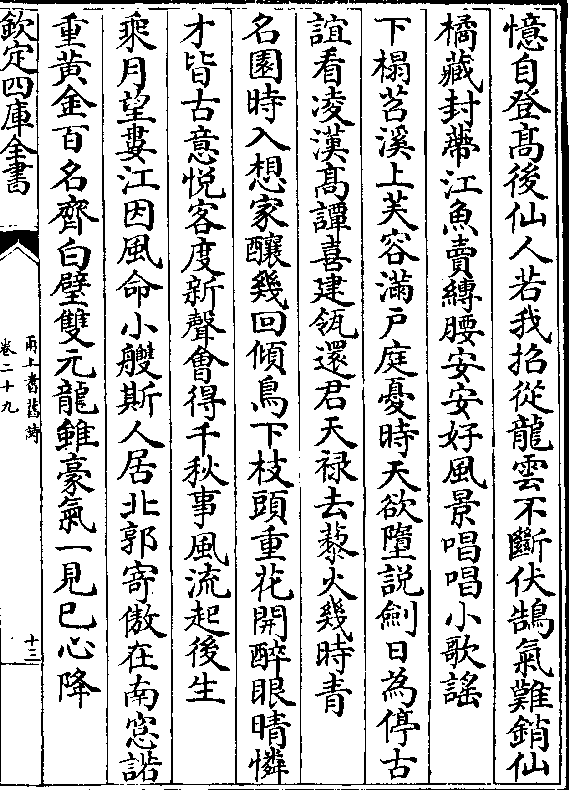 憶自登髙後仙人若我招從龍雲不斷伏鵠氣難銷仙
橘藏封蔕江魚賣縛腰安安好風景唱唱小歌謡
下榻苕溪上芙容滿戸庭憂時天欲墮説劍日為停古
誼看凌漢髙譚喜建瓴還君天禄去藜火幾時青
名園時入想家釀幾回傾鳥下枝頭重花開醉眼晴憐
才皆古意悦客度新聲會得千秋事風流起後生
乘月望婁江因風命小艭斯人居北郭寄傲在南窓諾
重黄金百名齊白璧雙元龍雖豪氣一見已心降
欽定四庫全書
甬上耆舊詩
卷二十九
十三